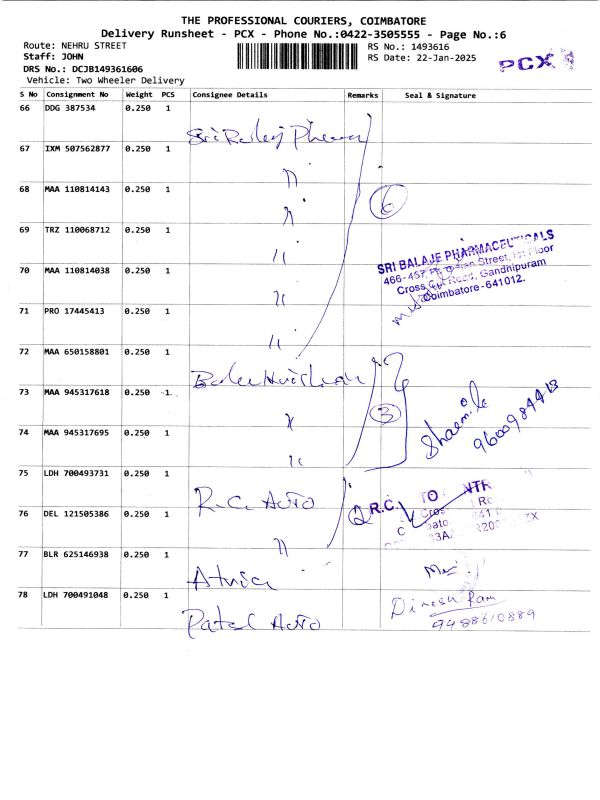 THE PROFESSIONAL COURIERS, COIMBATORE
Delivery Runsheet - PCX - Phone No.:0422-3505555 - Page No.:6
Route: NEHRU STREET
RS No.: 1493616
Staff: JOHN
RS Date: 22-Jan-2025
PCX
DRS No.: DCJB149361606
Vehicle: Two Wheeler Delivery
S No Consignment No Weight PCS Consignee Details Remarks Seal & Signature
66 DDG 387534 0.250 1
67 IXM 507562877 0.250 1
68 MAA 110814143 0.250 1
6
69 TRZ 110068712 0.250 1
SRI BALAJE PHARMACEUTICALS
466-457, Street, 1st Floor
Cross Cut Road, Gandhipuram
Coimbatore-641012.
70 MAA 110814038 0.250 1
71 PRO 17445413 0.250 1
72 MAA 650158801 0.250 1
Balakrishnan
73 MAA 945317618 0.250 1
3
74 MAA 945317695 0.250 1
75 LDH 700493731 0.250 1
R.C. Auto
R.C.
76 DEL 121505386 0.250 1
77 BLR 625146938 0.250 1
78 LDH 700491048 0.250 1
Dinesh Ram
Patel Auto
9488610889